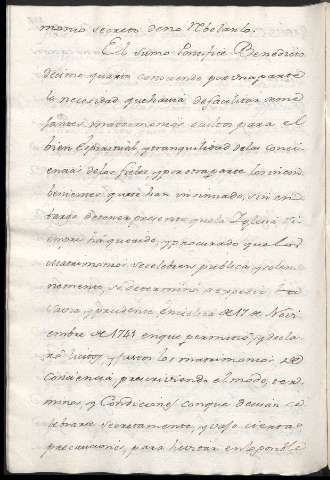 monio secreto de no Velarlo.
El sumo Pontifice Benedicto
decimo quarto conociendo por una parte
la necesidad que havia de facilitar seme
jantes matrimonios ocultos para el
bien Espiritual, y tranquilidad de las concien
cias de los fieles, y por otra parte los incon
benientes que se han insinuado, sin em
bargo de tener presente que la Iglesia si
empre há querido, y procurado que los
matrimonios se celebren publica, y solem
nemente, se determinó a expedir la
savia y prudente Enciclica de 17 de Novi
embre de 1741 en que permitió, y decla
ró licitos, y justos los matrimonios de
Conciencia prescriviendo el modo, ter
minos, y Condiciones con que devian ce
lebrarse secretamente, y vajo ciertas
precauciones, para hevitar en lo posible